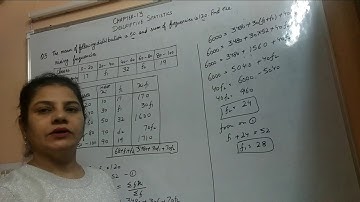 CHAPTER-13
DESCRIPTIVE STATISTICS
Q3 The mean of following distribution is 50 and sum of frequencies is 120. Find the
missing frequencies
17 f₁ 32 f₂ 19
10 17 170
30 f₁ 30f₁
50 32 1600
70 f₂ 70f₂
90 19 1710
68+f₁+f₂ 3480+30f₁+70f₂
52 - ①
3480+30f₁+70f₂
6000 = 3480+30(f₁+f₂)+
6000 = 3480+30×52+40f
6000 = 3480+1560+40f
6000 = 5040+40f₂
40f₂ = 6000-5040
40f₂ = 960
f₂ = 24
from eqn ①
f₁+24=52
f₁ = 28